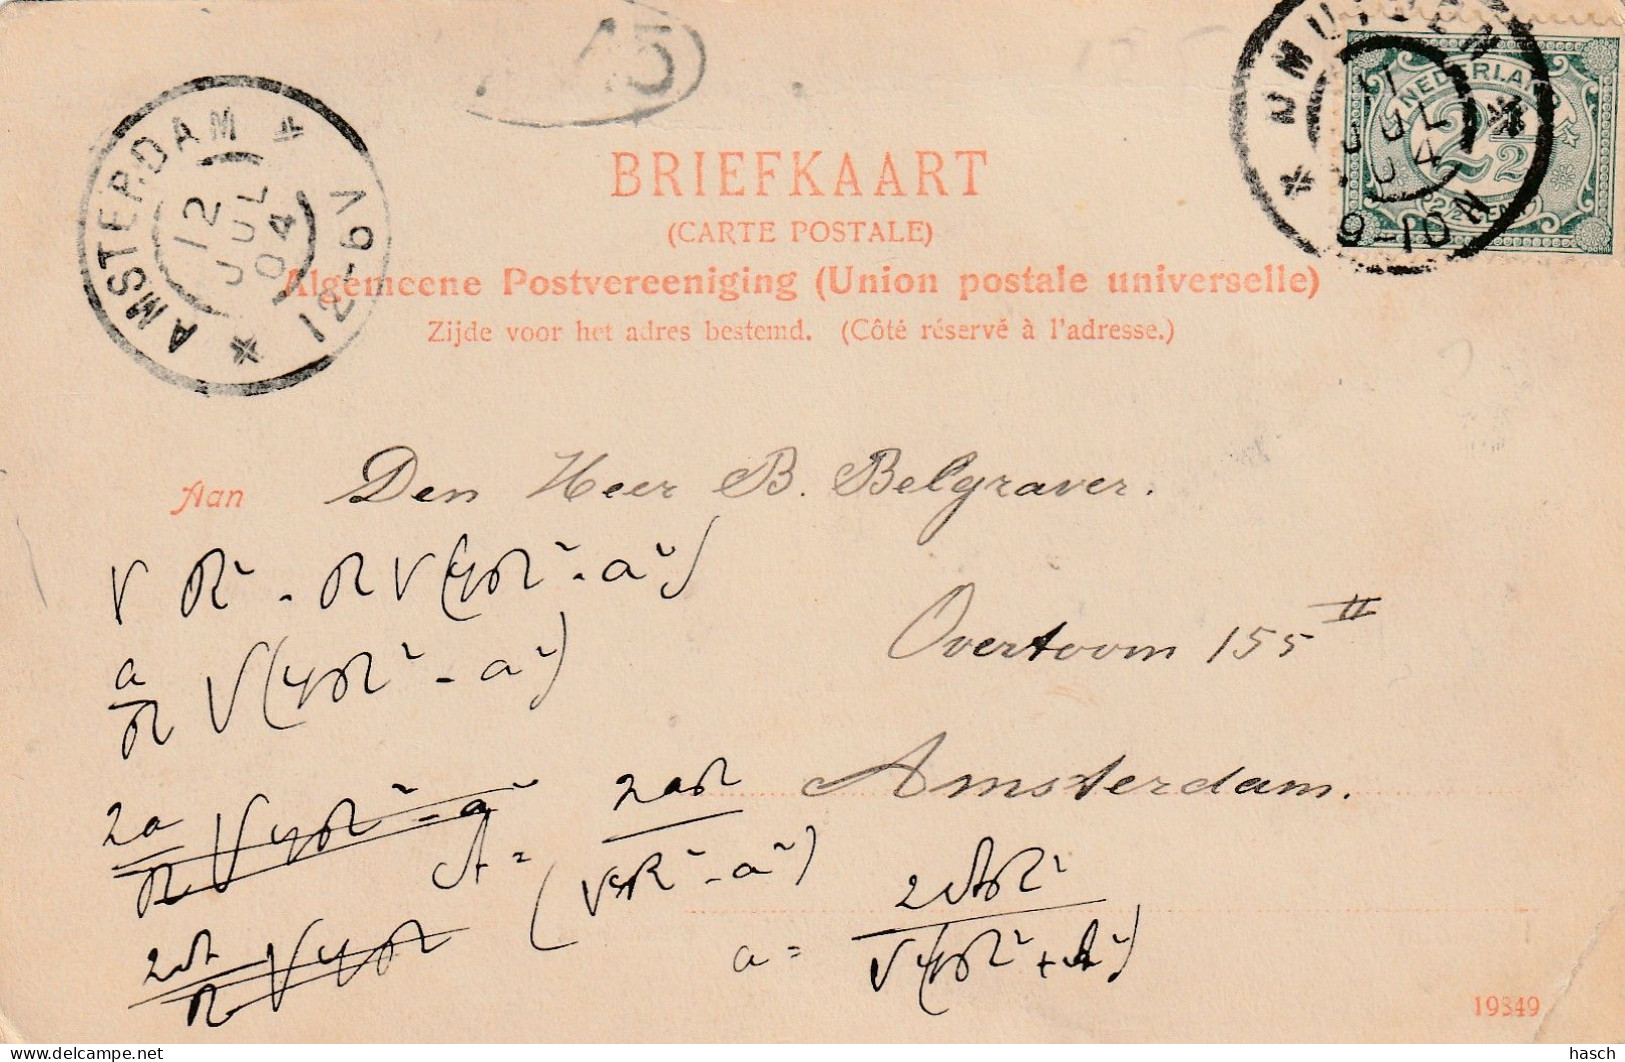 15
AMSTERDAM
12 JUL 04
12-6V
IJMUIDEN
11 JUL 04
9-10N
NEDERLAND
2½
BRIEFKAART
(CARTE POSTALE)
Algemeene Postvereeniging (Union postale universelle)
Zijde voor het adres bestemd. (Côté réservé à l'adresse.)
Aan Den Heer B. Belgraver.
√ R² - R√(4R² - a²)
Overtoom 155 II
a/R √(4R² - a²)
Amsterdam.
2a/R √4R² - a²
A = 2aR/(√4R² - a²)
2A/R √4R
a = 2AR²/√(4R² + A²)
19849
hasch